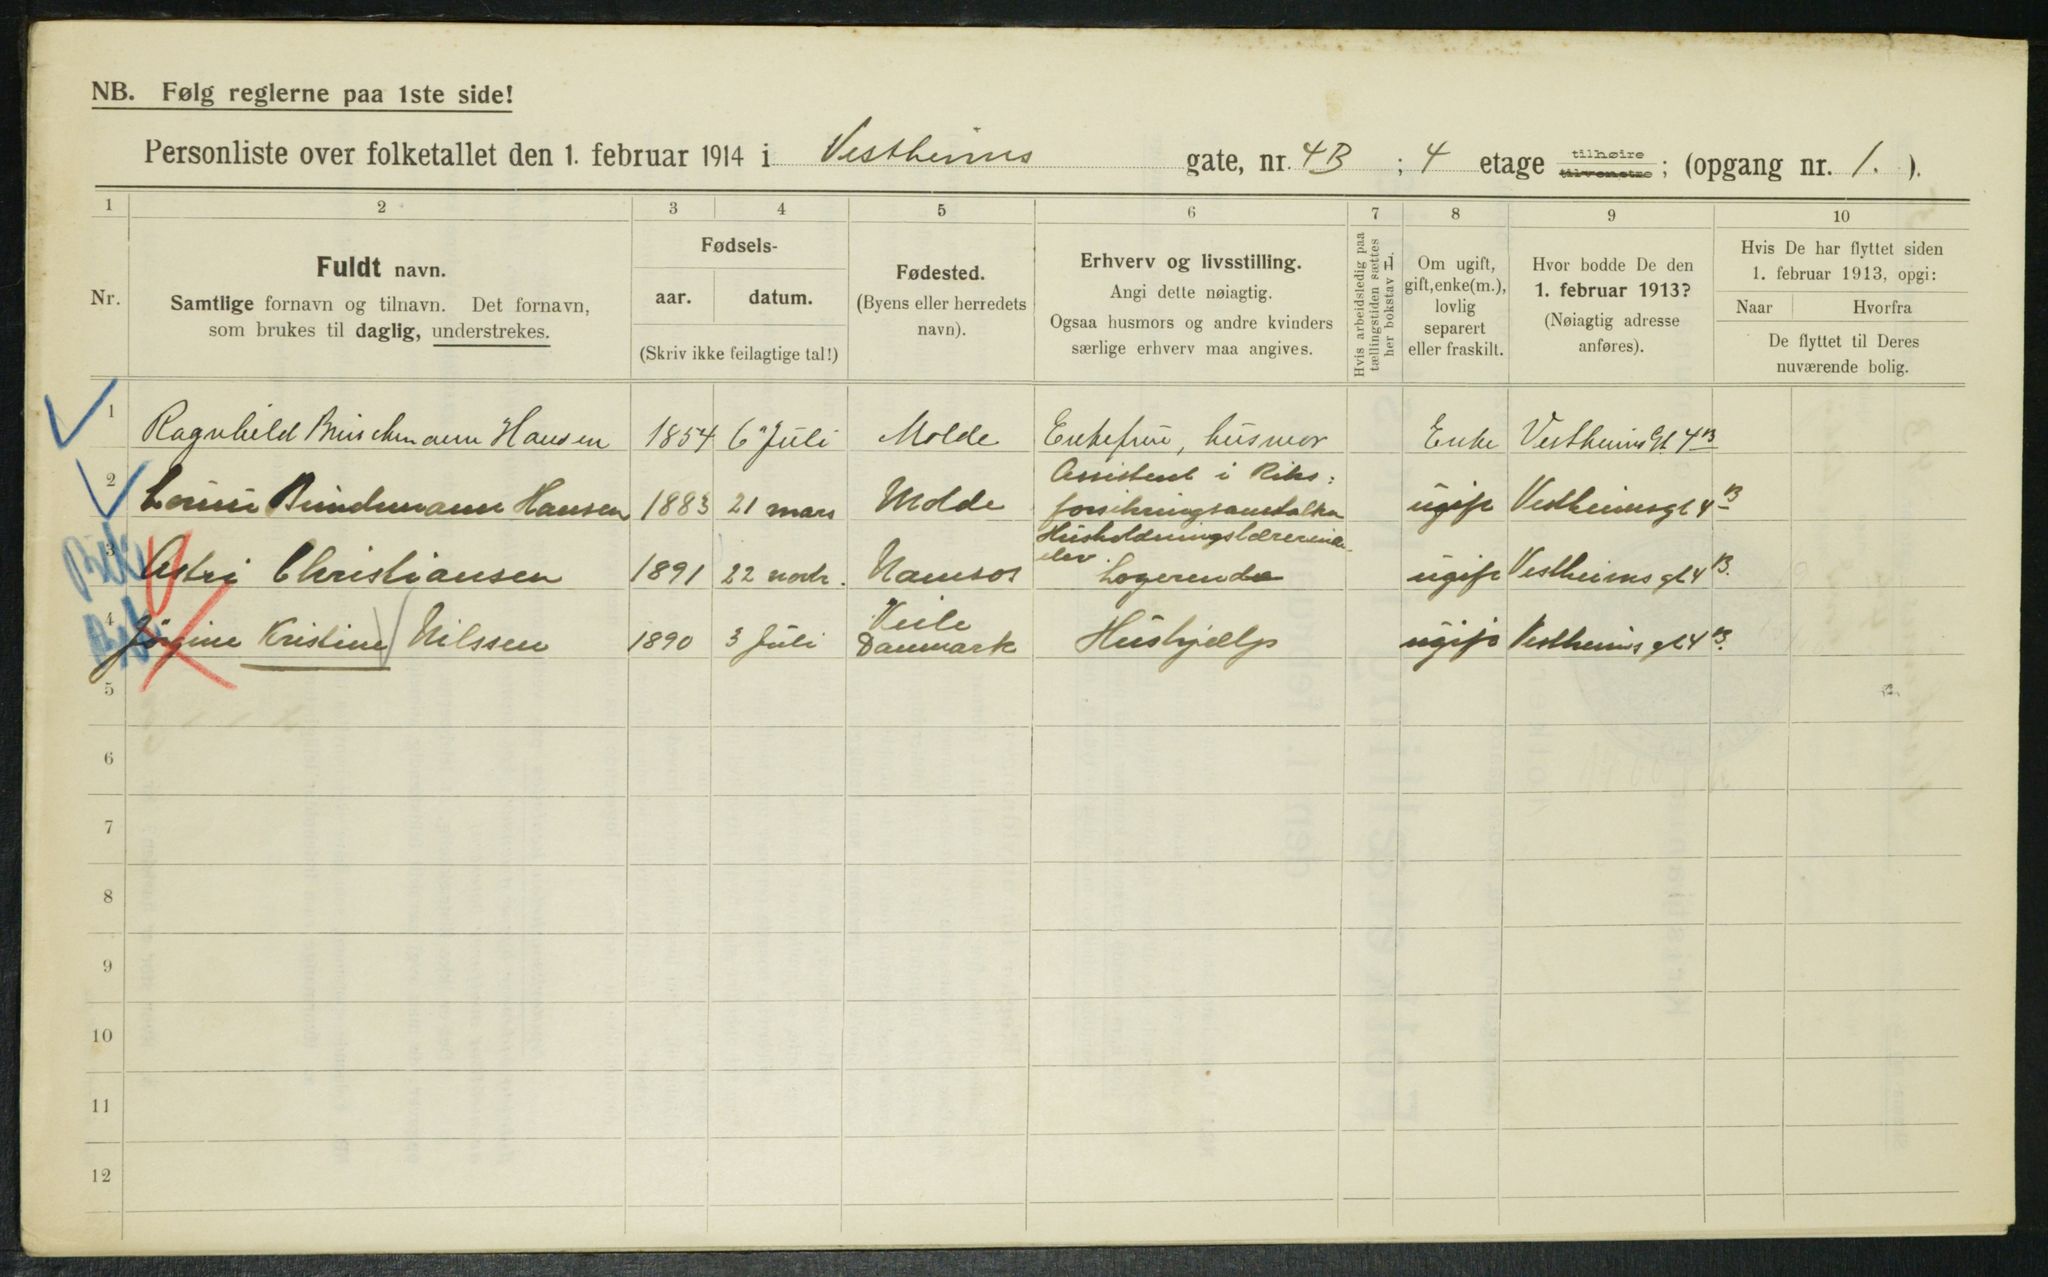 NB. Følg reglerne paa 1ste side!
Personliste over folketallet den 1. februar 1914 i Vestheims gate, nr. 4B ; 4 etage tilhøire tilvenstre ; (opgang nr. 1. ).
1 2 3 4 5 6 7 8 9 10
Nr.
Fuldt navn.
Samtlige fornavn og tilnavn. Det fornavn,
som brukes til daglig, understrekes.
Fødsels-
aar. datum.
(Skriv ikke feilagtige tal!)
Fødested.
(Byens eller herredets
navn).
Erhverv og livsstilling.
Angi dette nøiagtig.
Ogsaa husmors og andre kvinders
særlige erhverv maa angives.
Hvis arbeidsledig paa
tællingstiden sættes
her bokstav L
Om ugift,
gift, enke(m.),
lovlig
separert
eller fraskilt.
Hvor bodde De den
1. februar 1913?
(Nøiagtig adresse
anføres).
Hvis De har flyttet siden
1. februar 1913, opgi:
Naar Hvorfra
De flyttet til Deres
nuværende bolig.
1 Ragnhild Hansen 1854 6 Juli Molde Enkefrue, husmor Enke Vestheims Gt 4B
2 Hansen 1883 21 mars Molde Assistent i Riks: forsikringsanstalten ugift Vestheimsgt 4B
3 Astri Christiansen 1891 22 novbr. Namsos Husholdningslærerinde- elev. Logerende ugift Vestheims gt 4B.
4 Jørgine Kristine Nilssen 1890 3 Juli Veile Danmark Hushjælp ugift Vestheims gt 4B.
5
6
7
8
9
10
11
12